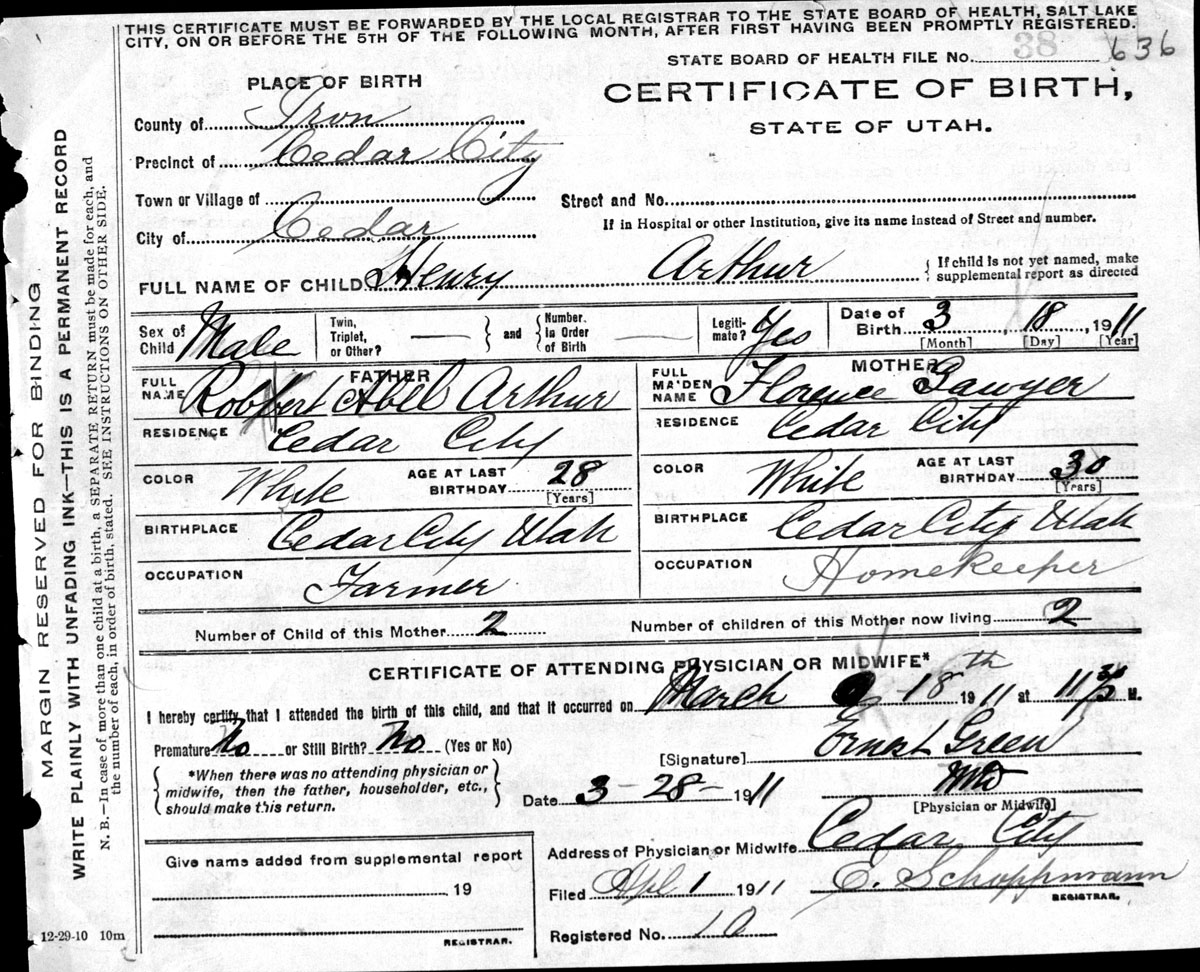 THIS CERTIFICATE MUST BE FORWARDED BY THE LOCAL REGISTRAR TO THE STATE BOARD OF HEALTH, SALT LAKE
CITY, ON OR BEFORE THE 5TH OF THE FOLLOWING MONTH, AFTER FIRST HAVING BEEN PROMPTLY REGISTERED.
STATE BOARD OF HEALTH FILE No. 38 636
PLACE OF BIRTH
CERTIFICATE OF BIRTH,
STATE OF UTAH.
County of Iron
Precinct of Cedar City
Town or Village of
Street and No.
City of Cedar
If in Hospital or other Institution, give its name instead of Street and number.
FULL NAME OF CHILD Henry Arthur
{ If child is not yet named, make
supplemental report as directed
Sex of Child Male
Twin, Triplet, or Other? } and { Number, in Order of Birth
Legitimate? Yes
Date of Birth 3 18, 1911
[Month] [Day] [Year]
FATHER
FULL NAME Robert Abel Arthur
RESIDENCE Cedar City
COLOR White AGE AT LAST BIRTHDAY 28
[Years]
BIRTHPLACE Cedar City Utah
OCCUPATION Farmer
MOTHER
FULL MAIDEN NAME Florence Sawyer
RESIDENCE Cedar City
COLOR White AGE AT LAST BIRTHDAY 30
[Years]
BIRTHPLACE Cedar City Utah
OCCUPATION Homekeeper
Number of Child of this Mother 2 Number of children of this Mother now living 2
CERTIFICATE OF ATTENDING PHYSICIAN OR MIDWIFE*
I hereby certify that I attended the birth of this child, and that it occurred on March 18th 1911 at 11 M.
Premature No or Still Birth? No (Yes or No)
[Signature] Ernest Green
MD
[Physician or Midwife]
{ *When there was no attending physician or
midwife, then the father, householder, etc.,
should make this return. }
Date 3-28-1911
Address of Physician or Midwife Cedar City
Give name added from supplemental report
19
REGISTRAR.
Filed Apl 1 1911 C. Schoppmann
REGISTRAR.
Registered No. 10
12-29-10 10m
MARGIN RESERVED FOR BINDING
WRITE PLAINLY WITH UNFADING INK—THIS IS A PERMANENT RECORD
N. B.—In case of more than one child at a birth, a SEPARATE RETURN must be made for each, and
the number of each, in order of birth, stated. SEE INSTRUCTIONS ON OTHER SIDE.